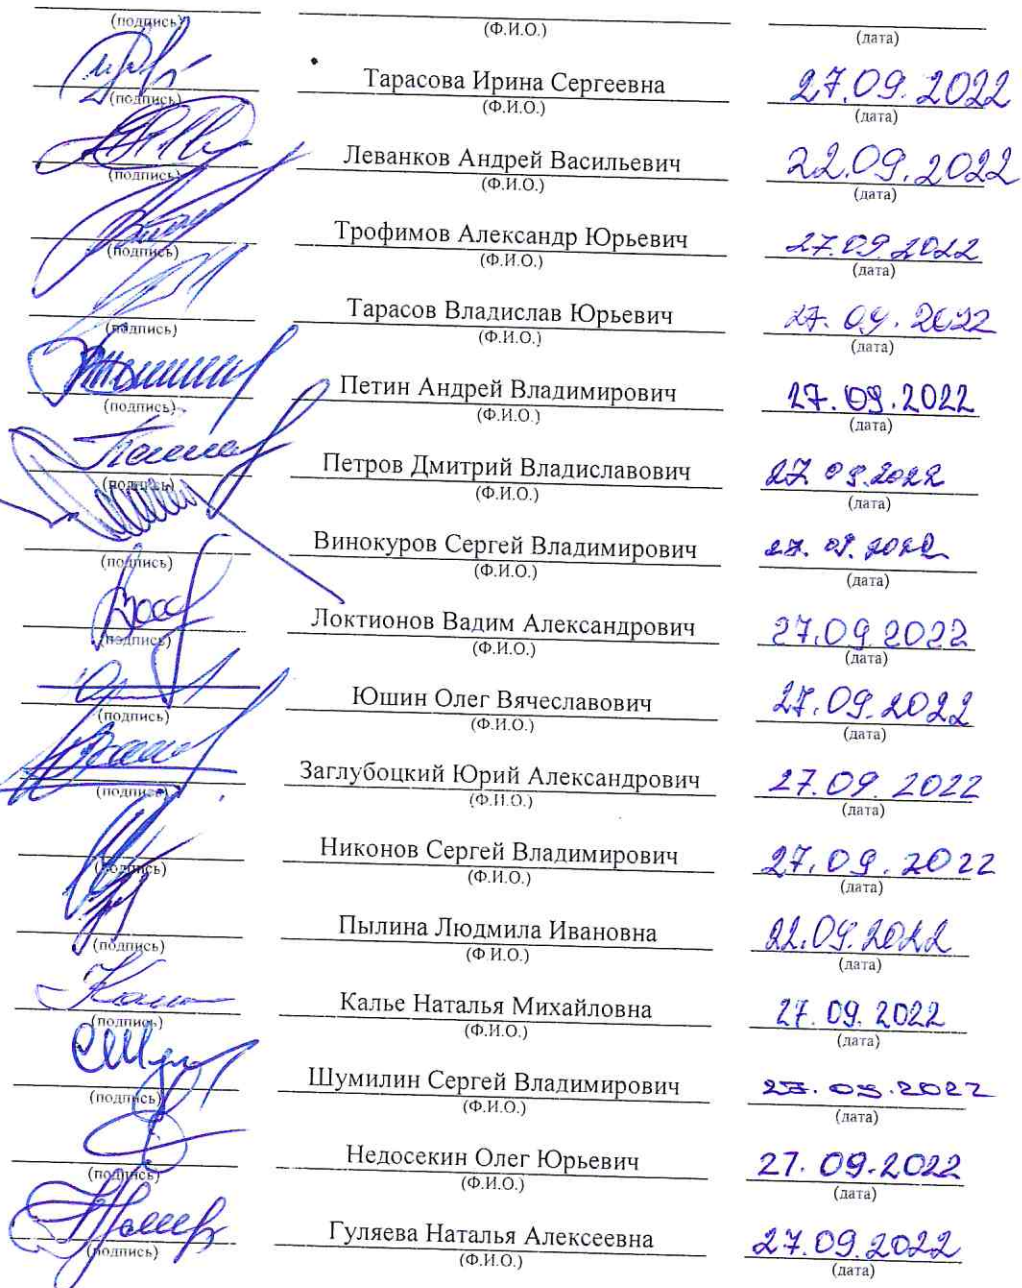 (подпись) (Ф.И.О.) (дата)
Тарасова Ирина Сергеевна 27.09.2022
(подпись) (Ф.И.О.) (дата)
Леванков Андрей Васильевич 22.09.2022
(подпись) (Ф.И.О.) (дата)
Трофимов Александр Юрьевич 27.09.2022
(подпись) (Ф.И.О.) (дата)
Тарасов Владислав Юрьевич 27.09.2022
(подпись) (Ф.И.О.) (дата)
Петин Андрей Владимирович 27.09.2022
(подпись) (Ф.И.О.) (дата)
Петров Дмитрий Владиславович 27.09.2022
(подпись) (Ф.И.О.) (дата)
Винокуров Сергей Владимирович 27.09.2022
(подпись) (Ф.И.О.) (дата)
Локтионов Вадим Александрович 27.09.2022
(подпись) (Ф.И.О.) (дата)
Юшин Олег Вячеславович 27.09.2022
(подпись) (Ф.И.О.) (дата)
Заглубоцкий Юрий Александрович 27.09.2022
(подпись) (Ф.И.О.) (дата)
Никонов Сергей Владимирович 27.09.2022
(подпись) (Ф.И.О.) (дата)
Пылина Людмила Ивановна 22.09.2022
(подпись) (Ф.И.О.) (дата)
Калье Наталья Михайловна 27.09.2022
(подпись) (Ф.И.О.) (дата)
Шумилин Сергей Владимирович 27.09.2022
(подпись) (Ф.И.О.) (дата)
Недосекин Олег Юрьевич 27.09.2022
(подпись) (Ф.И.О.) (дата)
Гуляева Наталья Алексеевна 27.09.2022
(подпись) (Ф.И.О.) (дата)